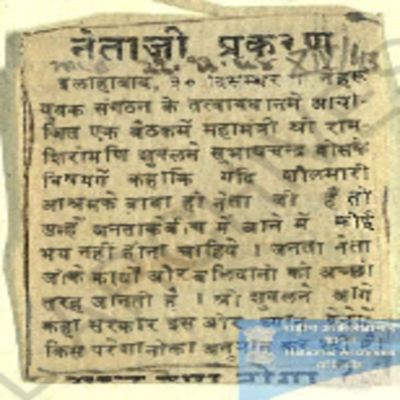 नेताजी प्रकरण
इलाहाबाद, १० दिसम्बर । नेहरू
युवक संगठन के तत्वावधानमें आयो-
जित एक बैठकमें महामंत्री श्री राम-
शिरोमणि शुक्लने सुभाषचन्द्र बोसके
विषयमें कहाकि यदि शौलमारी
आश्रमके बाबा ही नेता जी हैं तो
उन्हें जनताकेबीच में आने में कोई
भय नहीं होना चाहिये । जनता नेता
जीके कार्यों और बलिदानों को अच्छी
तरह जानती है । श्री शुक्लने आगे
कहा सरकार इस ओर
किस